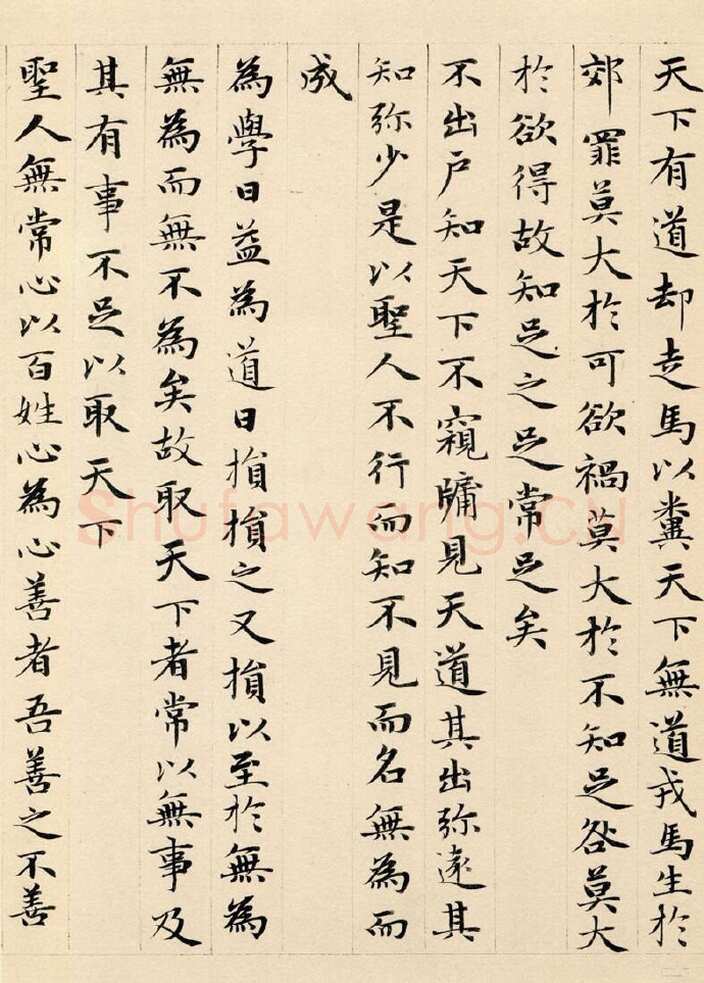 天下有道却走馬以糞天下無道戎馬生於
郊罪莫大於可欲禍莫大於不知足咎莫大
於欲得故知足之足常足矣
不出户知天下不窺牖見天道其出弥遠其
知弥少是以聖人不行而知不見而名無為而
成
為學日益為道日損損之又損以至於無為
無為而無不為矣故取天下者常以無事及
其有事不足以取天下
聖人無常心以百姓心為心善者吾善之不善
Shufawang.cn